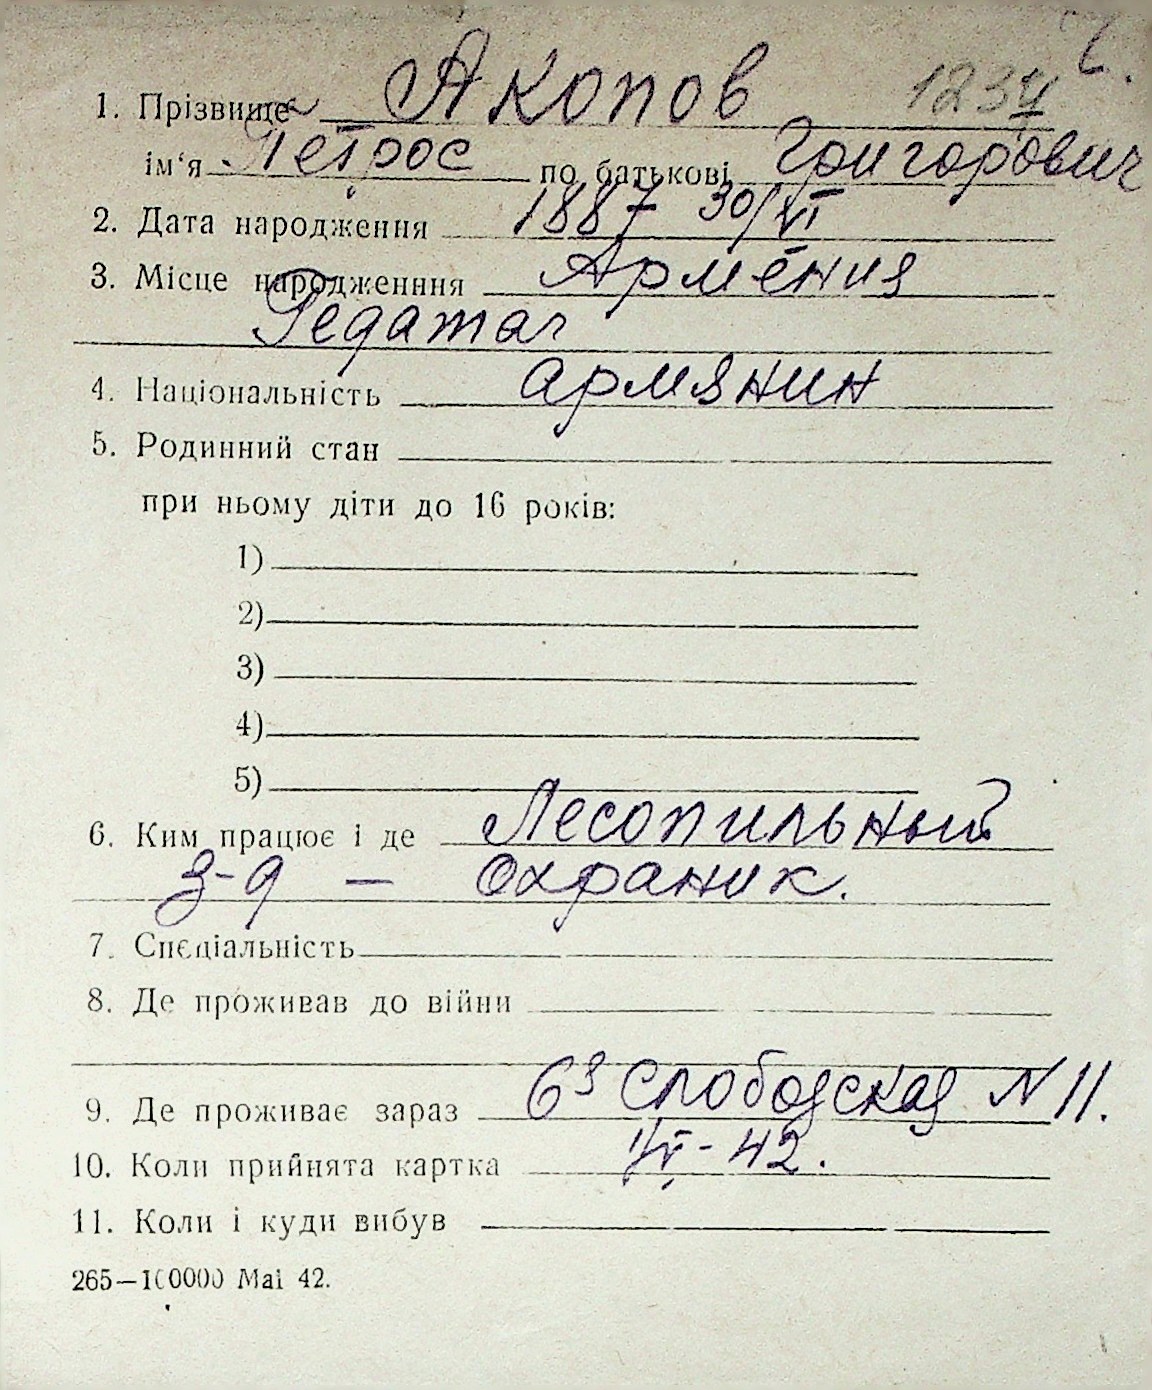 6.
1234
1. Прізвище Акопов
ім‘я Петрос по батькові Григорович
2. Дата народження 1887 30/VI
3. Місце народженння Армения
4. Національність армянин
5. Родинний стан
при ньому діти до 16 років:
1)
2)
3)
4)
5)
6. Ким працює і де Лесопильный
з-д — охраник.
7. Спеціальність
8. Де проживав до війни
9. Де проживає зараз 6я Слободская N 11.
10. Коли прийнята картка 1/VI-42.
11. Коли і куди вибув
265—100000 Mai 42.